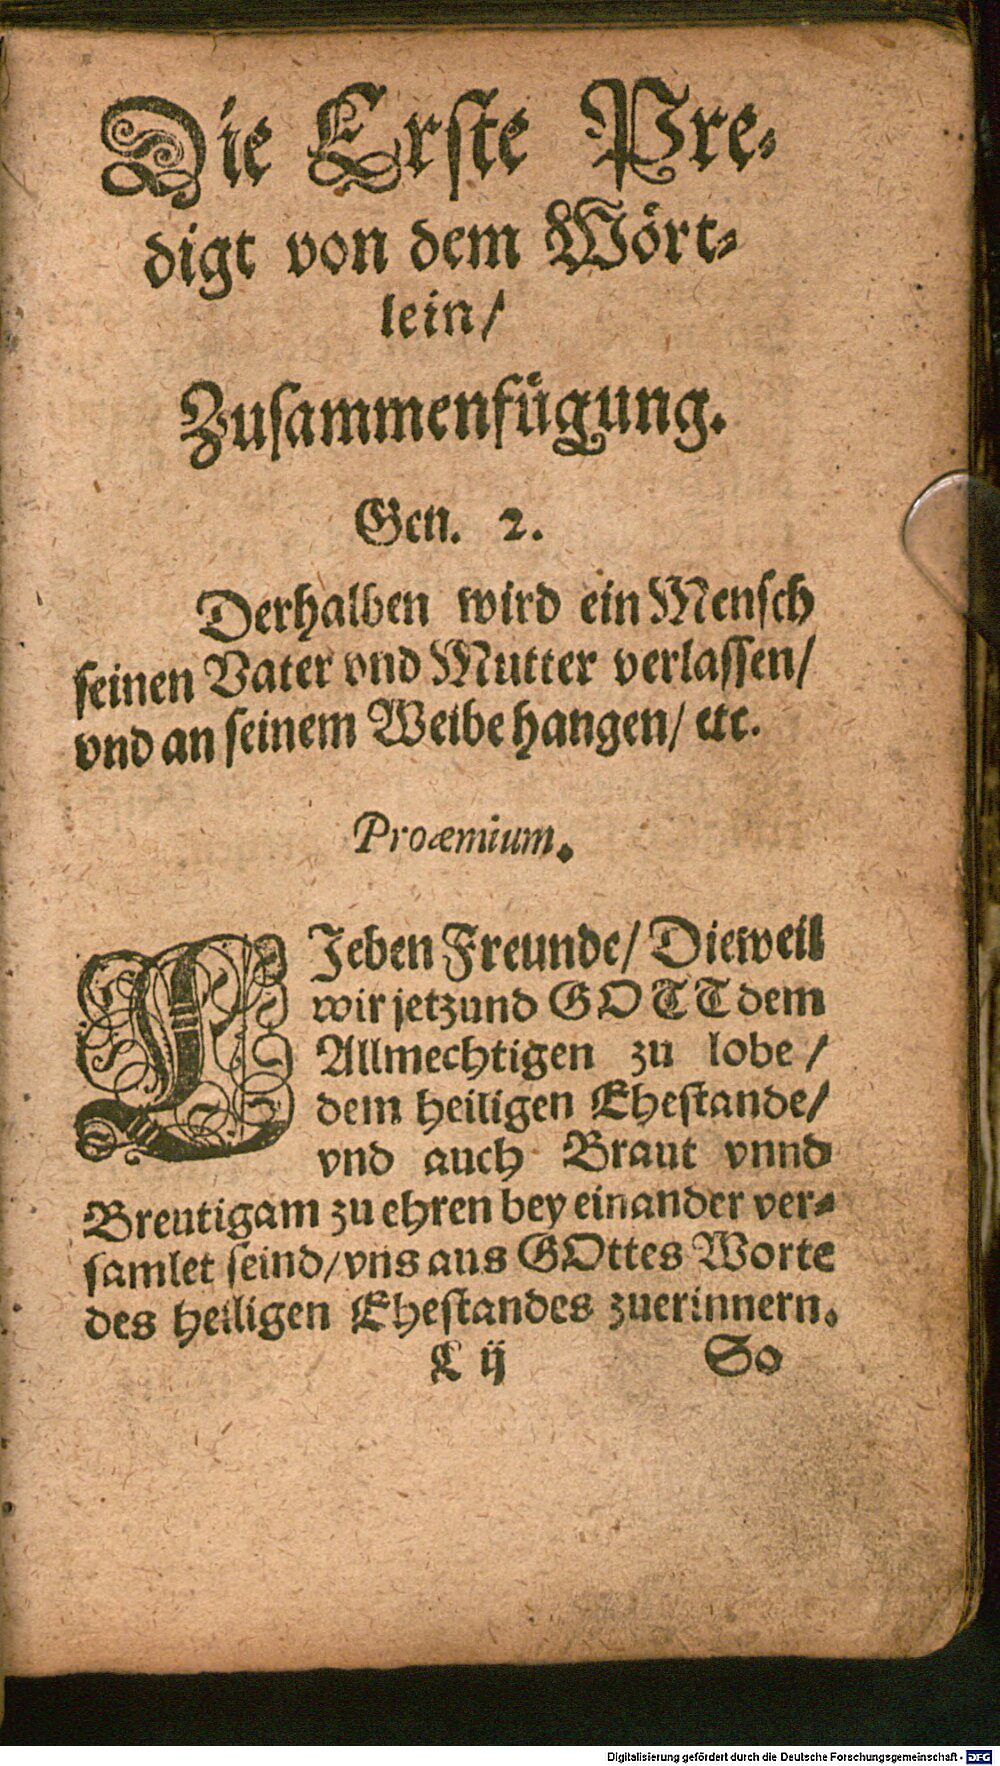 Die Erste Pre-
digt von dem Wört-
lein/
Zusammenfügung.
Gen. 2.
Derhalben wird ein Mensch
seinen Vater vnd Mutter verlassen/
vnd an seinem Weibe hangen/ etc.
Proæmium.
LJeben Freunde/ Dieweil
wir jetzund GOTT dem
Allmechtigen zu lobe/
dem heiligen Ehestande/
vnd auch Braut vnnd
Breutigam zu ehren bey einander ver-
samlet seind/ vns aus GOttes Worte
des heiligen Ehestandes zuerinnern.
C ij So
Digitalisierung gefördert durch die Deutsche Forschungsgemeinschaft - DFG